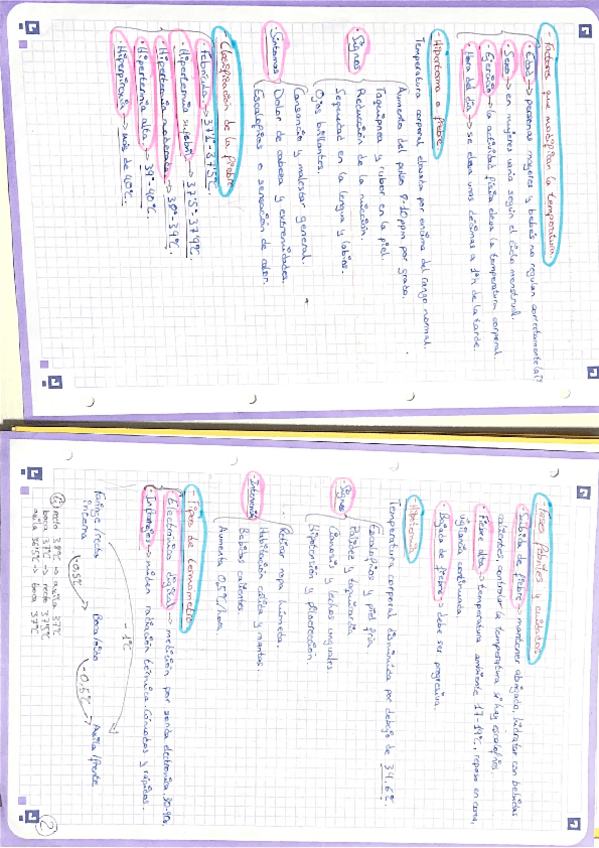 - Factores que modifican la temperatura.
· Edad → personas mayores y bebés no regulan correctamente la Tª
· Sexo → en mujeres varía según el ciclo menstrual.
· Ejercicio → la actividad física eleva la temperatura corporal.
· Hora del día → se eleva unas décimas a
- Hipertermia o fiebre.
Temperatura corporal elevada por encima del rango normal.
· Signos
Aumento del pulso 8-10ppm por grado.
Taquipnea y rubor en la piel.
Reducción de la micción.
Sequedad en la lengua y labios.
Ojos brillantes.
· Síntomas
Cansancio y malestar general.
Dolor de cabeza y extremidades.
Escalofríos o sensación de calor.
- Clasificación de la fiebre
· Febrícula → 37'1º-37'5ºC.
· Hipertermia subfebril → 37'5º-37'9ºC.
· Hipertermia moderada → 38º-39ºC.
· Hipertermia alta → 39º-40ºC.
· Hiperpirexia → más de 40ºC.
- Fases febriles y cuidados.
· Subida de fiebre → mantener abrigado, hidratar con bebidas
calientes, controlar la temperatura si hay escalofríos.
· Fiebre alta → temperatura ambiente 17-19ºC, reposo en cama,
vigilancia continuada.
· Bajada de fiebre → debe ser progresiva.
- Hipotermia
Temperatura corporal disminuida por debajo de 34,6ºC.
· Signos
Escalofríos y piel fría
Palidez y
Cianosis y lechos ungueales.
Hipotensión y piloerección.
· Intervención
Retirar ropa húmeda.
Habitación cálida y mantas.
Bebidas calientes.
Aumenta 0,5º/hora
- Tipos de termómetro
· Electrónico digital → medición por sonda electrónica. 30-90s.
· Infrarrojos → miden radiación térmica. Cómodos y rápidos.
- 1ºC
Faringe/recto
interna
-0,5º
Boca/oído
-0,5º
Axila/frente
recto 38ºC → axila 37ºC
boca 37ºC → recto 37'5ºC
axila 36'5ºC → boca 37ºC
2